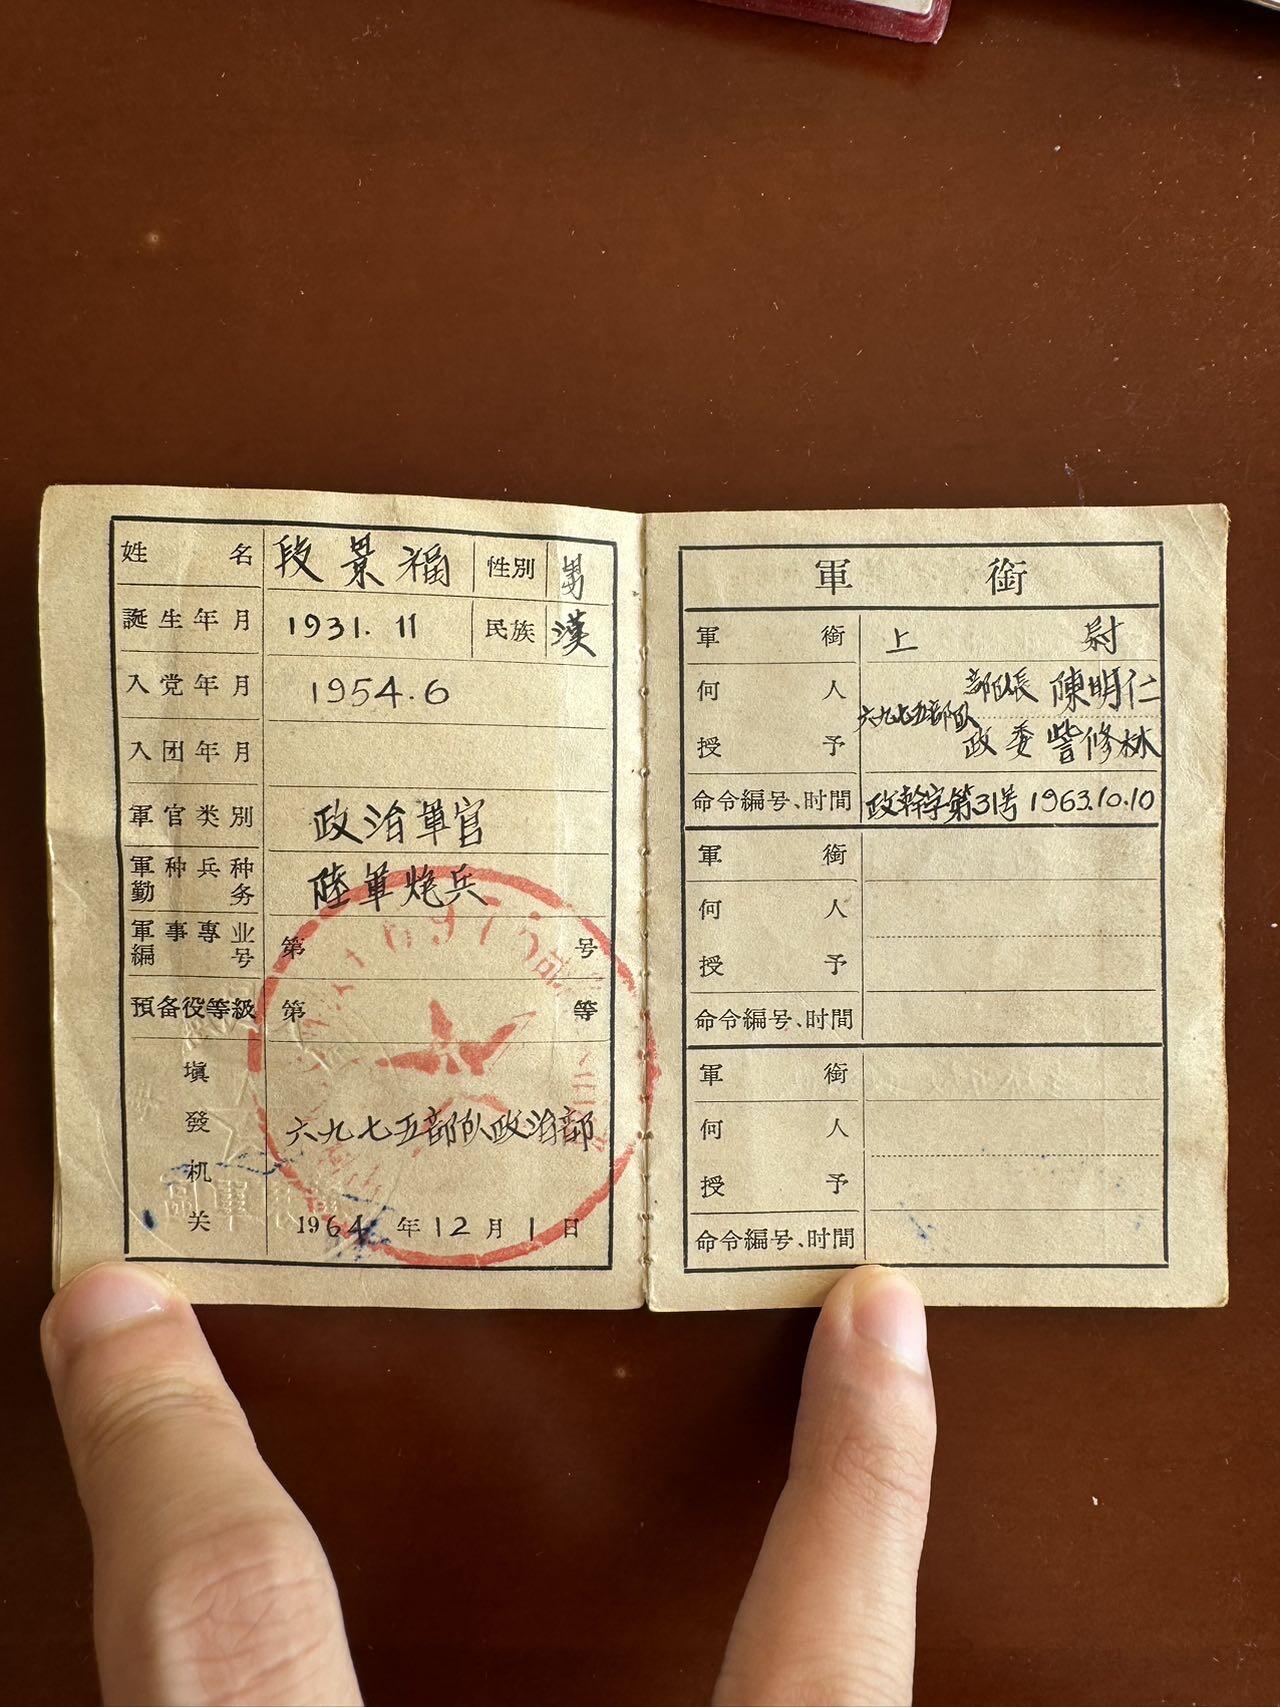 姓名 段景福 性別 男
誕生年月 1931.11 民族 漢
入党年月 1954.6
入团年月
軍官类別 政治軍官
軍种兵种
勤务 陸軍炮兵
軍事專业
編号 第 号
預备役等級 第 等
塡發机关 六九七五部队政治部
1964年12月1日
軍銜
軍銜 上尉
何人 部队長 陳明仁
六九七五部队
授予 政委 訾修林
命令編号、时間 政幹字第31号 1963.10.10
軍銜
何人
授予
命令編号、时間
軍銜
何人
授予
命令編号、时間